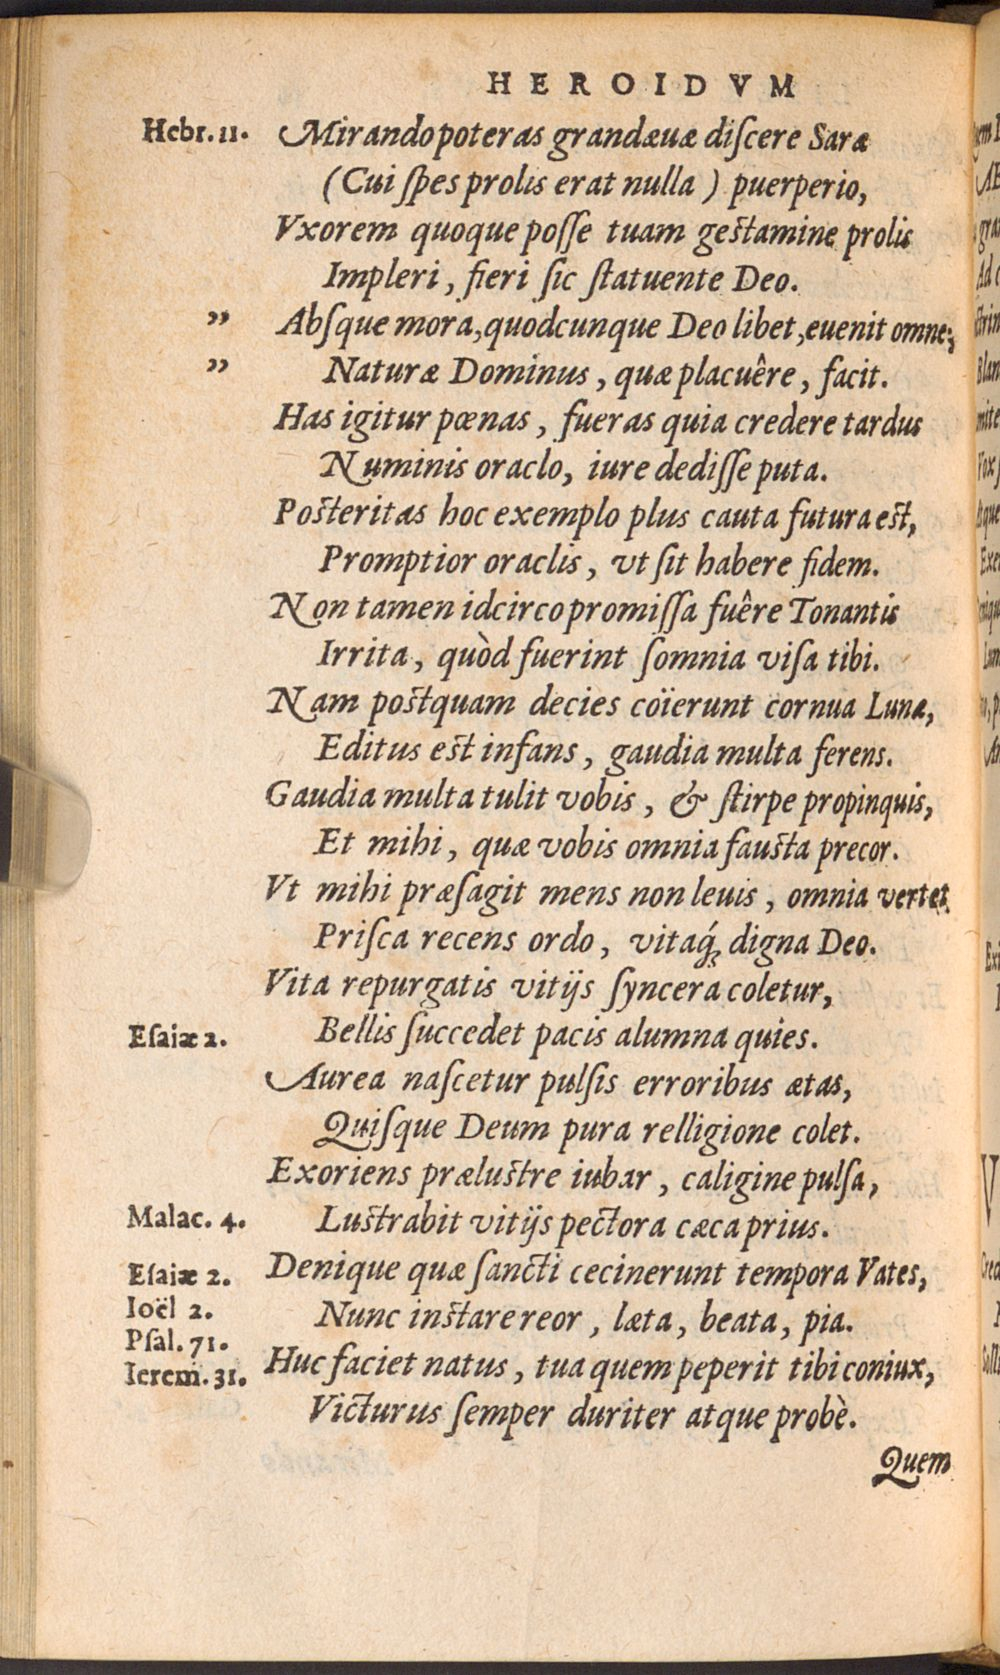 HEROIDVM
Hebr. 11. Mirando poteras grandæuæ diſcere Saræ
(Cui ſpes prolis erat nulla) puerperio,
Vxorem quoque poſſe tuam geſtamine prolis
Impleri, fieri ſic ſtatuente Deo.
„ Abſque mora, quodcunque Deo libet, euenit omne;
„ Naturæ Dominus, quæ placuêre, facit.
Has igitur pœnas, fueras quia credere tardus
Numinis oraclo, iure dediſſe puta.
Poſteritas hoc exemplo plus cauta futura eſt,
Promptior oraclis, vt ſit habere fidem.
Non tamen idcirco promiſſa fuêre Tonantis
Irrita, quòd fuerint ſomnia viſa tibi.
Nam poſtquam decies coïerunt cornua Lunæ,
Editus eſt infans, gaudia multa ferens.
Gaudia multa tulit vobis, & ſtirpe propinquis,
Et mihi, quæ vobis omnia fauſta precor.
Vt mihi præſagit mens non leuis, omnia vertet
Priſca recens ordo, vitaq́; digna Deo.
Vita repurgatis vitijs ſyncera coletur,
Eſaiæ 2. Bellis ſuccedet pacis alumna quies.
Aurea naſcetur pulſis erroribus ætas,
Quiſque Deum pura relligione colet.
Exoriens præluſtre iubar, caligine pulſa,
Malac. 4. Luſtrabit vitijs pectora cæca prius.
Eſaiæ 2. Denique quæ ſancti cecinerunt tempora Vates,
Ioël 2. Nunc inſtare reor, læta, beata, pia.
Pſal. 71.
Ierem. 31. Huc faciet natus, tua quem peperit tibi coniux,
Victurus ſemper duriter atque probè.
Quem